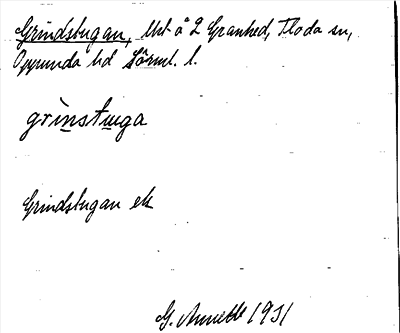 Grindstugan, lht å 2 Granhed, Floda sn,
Oppunda hd Sörml. l.
grìnstuga
Grindstugan ek
G. Annell 1931